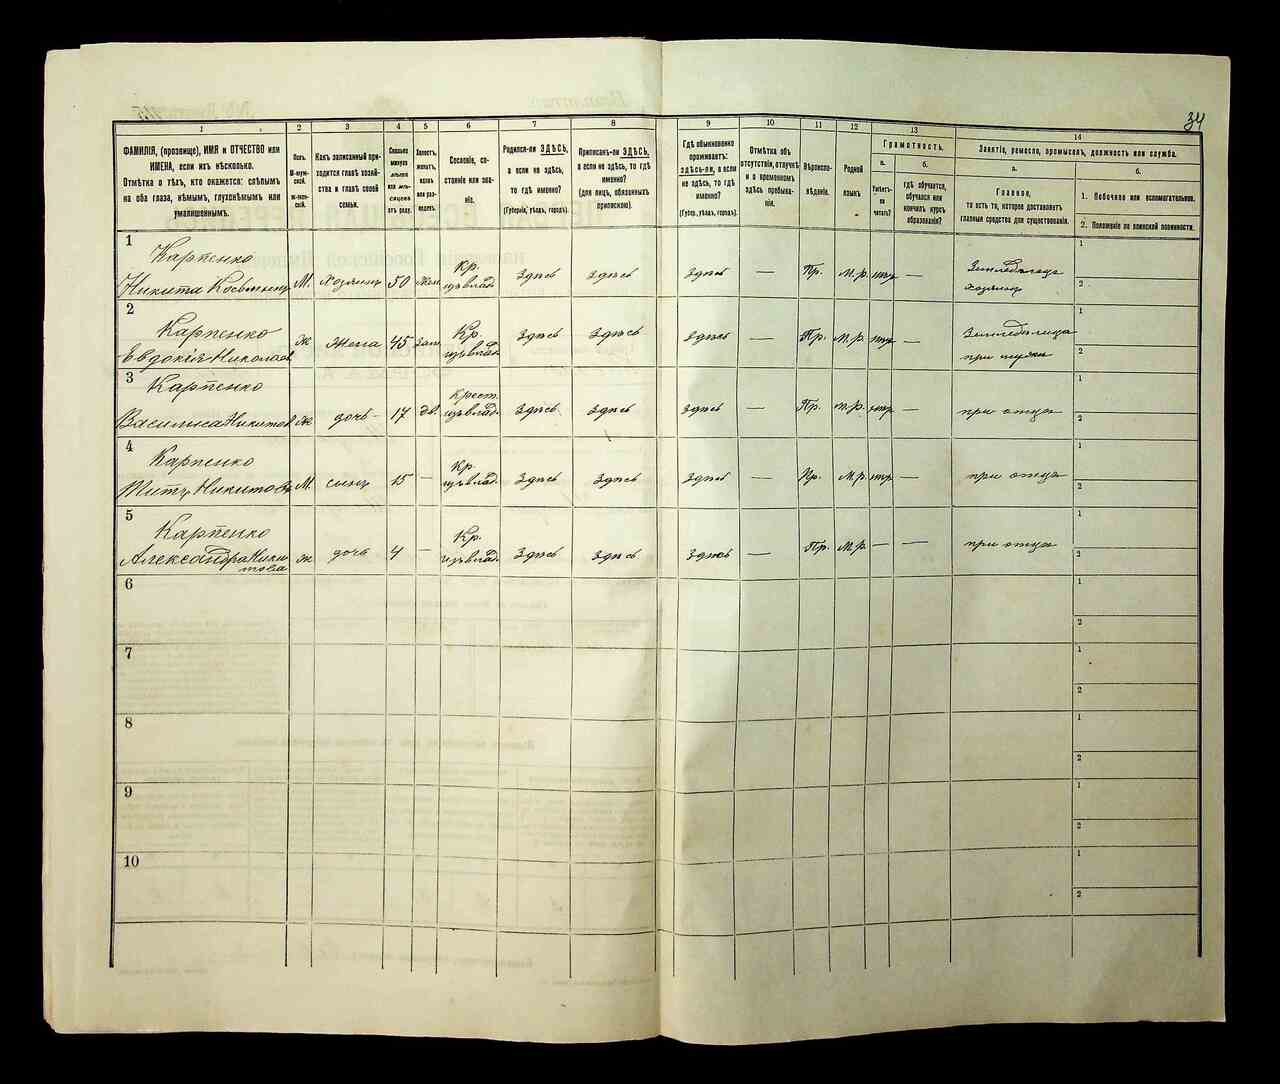 34
1 2 3 4 5 6 7 8 9 10 11 12 13 14
ФАМИЛІЯ, (прозвище), ИМЯ и ОТЧЕСТВО или
ИМЕНА, если ихъ нѣсколько.
Отмѣтка о тѣхъ, кто окажется: слѣпымъ
на оба глаза, нѣмымъ, глухонѣмымъ или
умалишеннымъ.
Полъ.
М-мужской.
Ж-женскій.
Какъ записанный приходится
главѣ хозяйства
и главѣ своей
семьи.
Сколько
минуло
лѣтъ
или мѣсяцевъ
отъ роду.
Холостъ,
женатъ,
вдовъ
или разведенъ.
Сословіе, состояніе
или званіе.
Родился-ли ЗДѢСЬ,
а если не здѣсь,
то гдѣ именно?
(Губернія, уѣздъ, городъ).
Приписанъ-ли ЗДѢСЬ,
а если не здѣсь, то гдѣ
именно?
(для лицъ, обязанныхъ
припискою).
Гдѣ обыкновенно
проживаетъ:
здѣсь-ли, а если
не здѣсь, то гдѣ
именно?
(Губер., уѣздъ, городъ).
Отмѣтка объ
отсутствіи, отлучкѣ
и о временномъ
здѣсь пребываніи.
Вѣроисповѣданіе.
Родной
языкъ.
Грамотность.
а.
Умѣетъ-ли
читать?
б.
гдѣ обучается,
обучался или
кончилъ курсъ
образованія?
Занятіе, ремесло, промыселъ, должность или служба.
а.
Главное,
то есть то, которое доставляетъ
главныя средства для существованія.
б.
1. Побочное или вспомогательное.
2. Положеніе по воинской повинности.
1
Карпенко
Никита Косьминъ М. Хозяинъ 50 жен. Кр. изъ влад. Здѣсь здѣсь здѣсь — Пр. м.р. нѣтъ — Земледѣлецъ хозяинъ 1 2
2
Карпенко
Евдокія Николаев Ж жена 45 зам. Кр. изъ влад. Здѣсь Здѣсь здѣсь — Пр. м.р. нѣтъ — Земледѣлица при мужѣ 1 2
3
Карпенко
Василиса Никитов Ж дочь 17 дѣв. Крест. изъ влад. Здѣсь здѣсь здѣсь — Пр. м.р. нѣтъ — при отцѣ 1 2
4
Карпенко
Титъ Никитовъ М. сынъ 15 — Кр. изъ влад. Здѣсь здѣсь здѣсь — Пр. м.р. нѣтъ — при отцѣ 1 2
5
Карпенко
Александра Никитова ж дочь 4 — Кр. изъ влад. Здѣсь здѣсь Здѣсь — Пр. м.р. — — при отцѣ 1 2
6 1 2
7 1 2
8 1 2
9 1 2
10 1 2